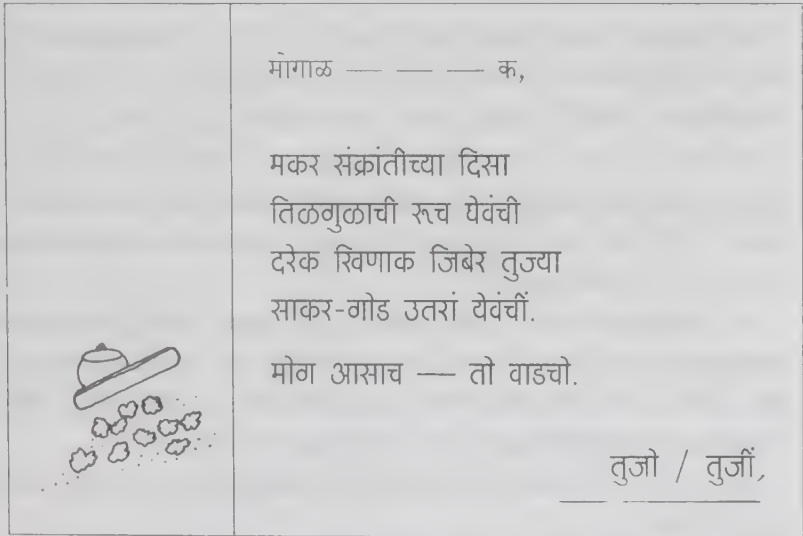 मोगाळ — — — क,
मकर संक्रांतीच्या दिसा
तिळगुळाची रूच येवंची
दरेक खिणाक जिबेर तुज्या
साकर-गोड उतरां येवंचीं.
मोग आसाच — तो वाडचो.
तुजो / तुजीं,